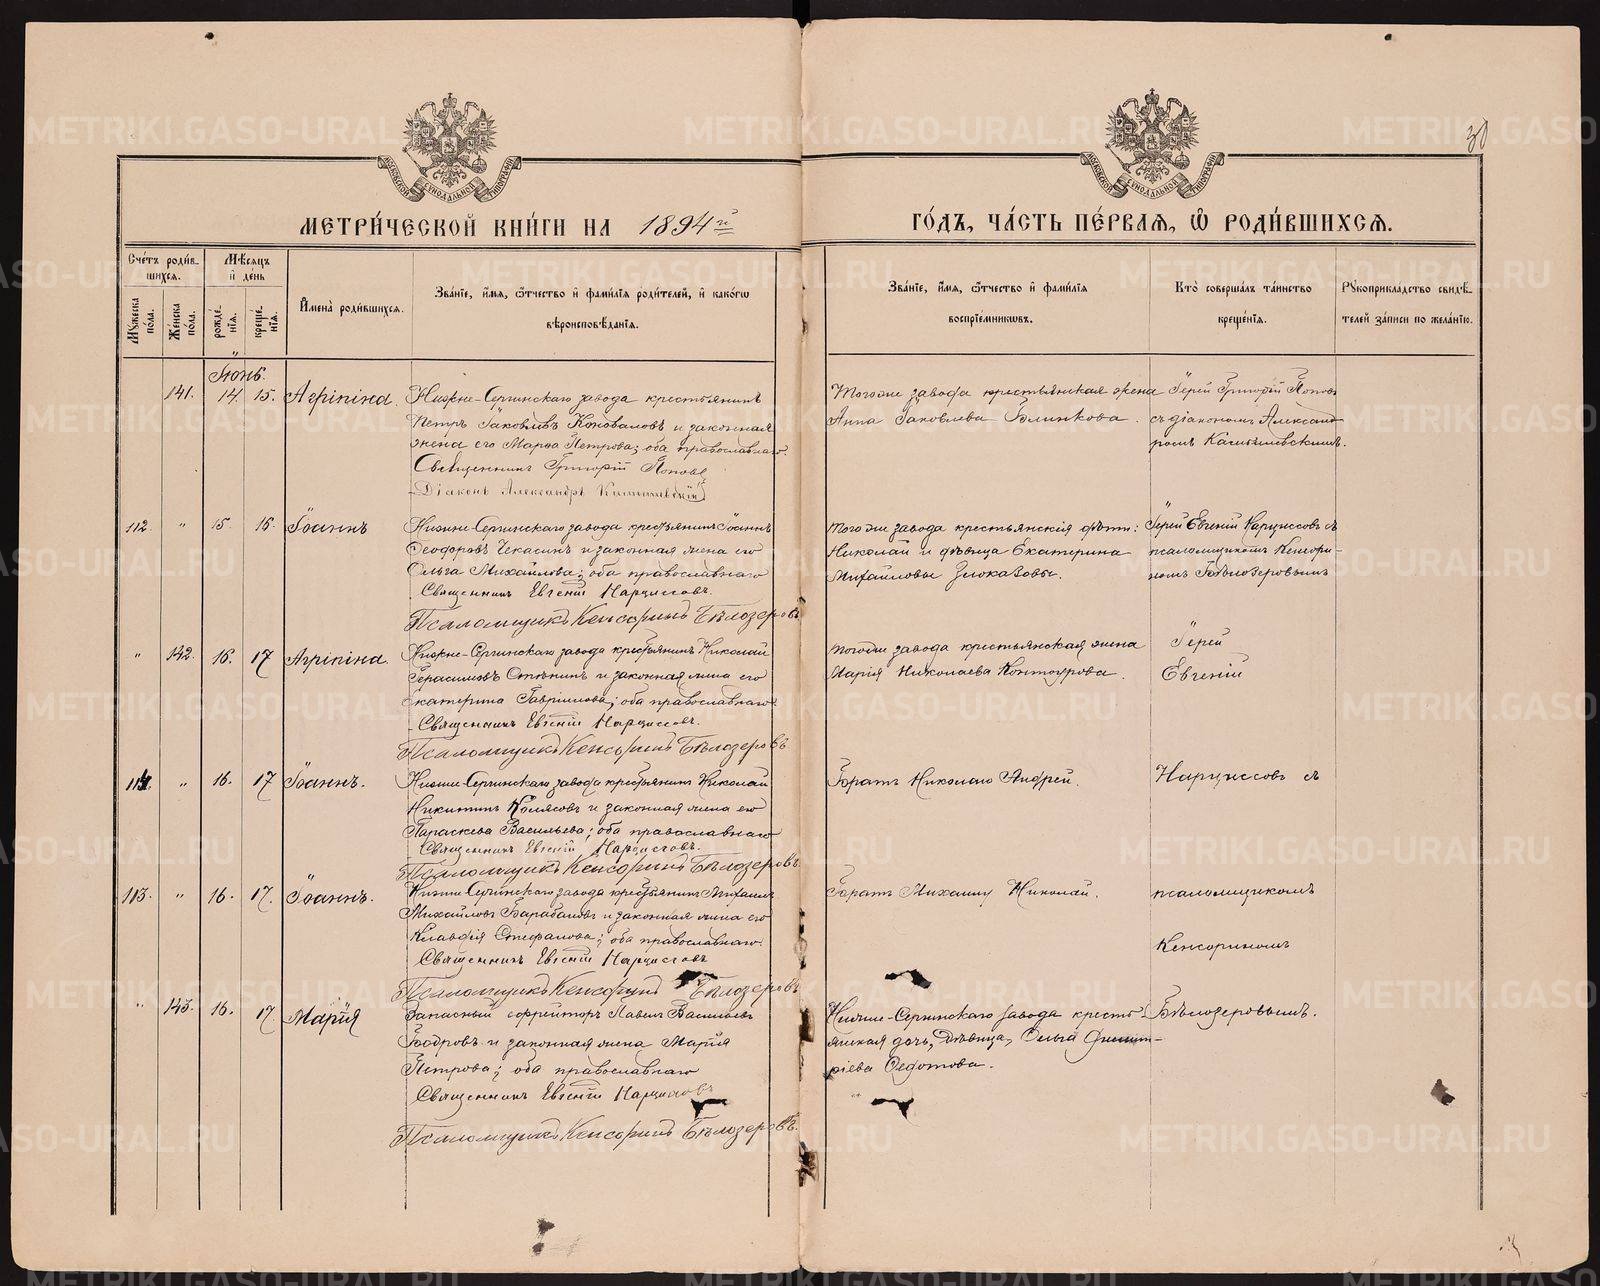 30
МОСКОВСКОЙ СѴНОДАЛЬНОЙ ТИПОГРАФІИ
МОСКОВСКОЙ СѴНОДАЛЬНОЙ ТИПОГРАФІИ
МЕТРИ́ЧЕСКОЙ КНИ́ГИ НА 1894й
ГО́ДЪ, ЧА́СТЬ ПЕ́РВАЯ, Ѡ РОДИ́ВШИХСЯ.
Сче́тъ роди́вшихся.
Мѣ́сяцъ и҆ де́нь
Мꙋ́жеска по́ла.
Же́нска по́ла.
рожде́нія.
креще́нія.
И҆мена̀ роди́вшихся.
Зва́ніе, и҆́мя, ѻ҆́тчество и҆ фами́лія роди́телей, и҆ како́гѡ
вѣроисповѣ́данія.
Зва́ніе, и҆́мя, ѻ҆́тчество и҆ фами́лія
воспріе́мникѡвъ.
Кто̀ соверша́лъ та́инство
креще́нія.
Рꙋкоприкла́дство свидѣ́-
телей за́писи по жела́нію.
Іюнь.
141. 14. 15. Агрипина.
Нижне-Сергинскаго завода крестьянинъ
Петръ Іаковлевъ Коноваловъ и законная
жена его Марѳа Петрова; оба православнаго.
Священникъ Григорій Поповъ
Діаконъ Александръ
Тогоже завода крестьянская жена
Анна Іаковлева Блинкова.
Іерей Григорій Поповъ
съ діакономъ Александ-
ромъ
112. " 15. 16. Іоаннъ
Нижне-Сергинскаго завода крестьянинъ Іоаннъ
Ѳеодоровъ Чекасинъ и законная жена его
Ольга Михайлова; оба православнаго
Священникъ Евгеній Нарциссовъ.
Псаломщикъ Кенсоринъ Бѣлозеровъ
Тогоже завода крестьянскія дѣти:
Николай и дѣвица Екатерина
Михайловы Злоказовы.
Іерей Евгеній Нарциссовъ съ
псаломщикомъ Кенсори-
номъ Бѣлозеровымъ
" 142. 16. 17 Агрипина.
Нижне-Сергинскаго завода крестьянинъ Николай
Герасимовъ и законная жена его
Екатерина Гаврилова; оба православнаго
Священникъ Евгеній Нарциссовъ.
Псаломщикъ Кенсоринъ Бѣлозеровъ
Тогоже завода крестьянская жена
Марія Николаева
Іерей
Евгеній
" 16. 17 Іоаннъ.
Нижне-Сергинскаго завода крестьянинъ Николай
Никитинъ Колясовъ и законная жена его
Параскева Васильева; оба православнаго
Священникъ Евгеній Нарциссовъ.
Псаломщикъ Кенсоринъ Бѣлозеровъ
Братъ Николаю Андрей.
Нарциссовъ съ
113. " 16. 17. Іоаннъ.
Нижне-Сергинскаго завода крестьянинъ Михаилъ
Михайловъ Барабановъ и законная жена его
Клавдія Стефанова; оба православнаго
Священникъ Евгеній Нарциссовъ
Псаломщикъ Кенсоринъ Бѣлозеровъ
Братъ Михаилу Николай.
псаломщикомъ
Кенсориномъ
" 143. 16. 17 Марія
Запасный ефрейторъ Павелъ Васильевъ
Бобровъ и законная жена Марія
Петрова; оба православнаго
Священникъ Евгеній Нарциссовъ
Псаломщикъ Кенсоринъ Бѣлозеровъ.
Нижне-Сергинскаго завода кресть-
янская дочь, дѣвица, Ольга Димит-
ріева Ѳедотова.
Бѣлозеровымъ.
METRIKI.GASO-URAL.RU